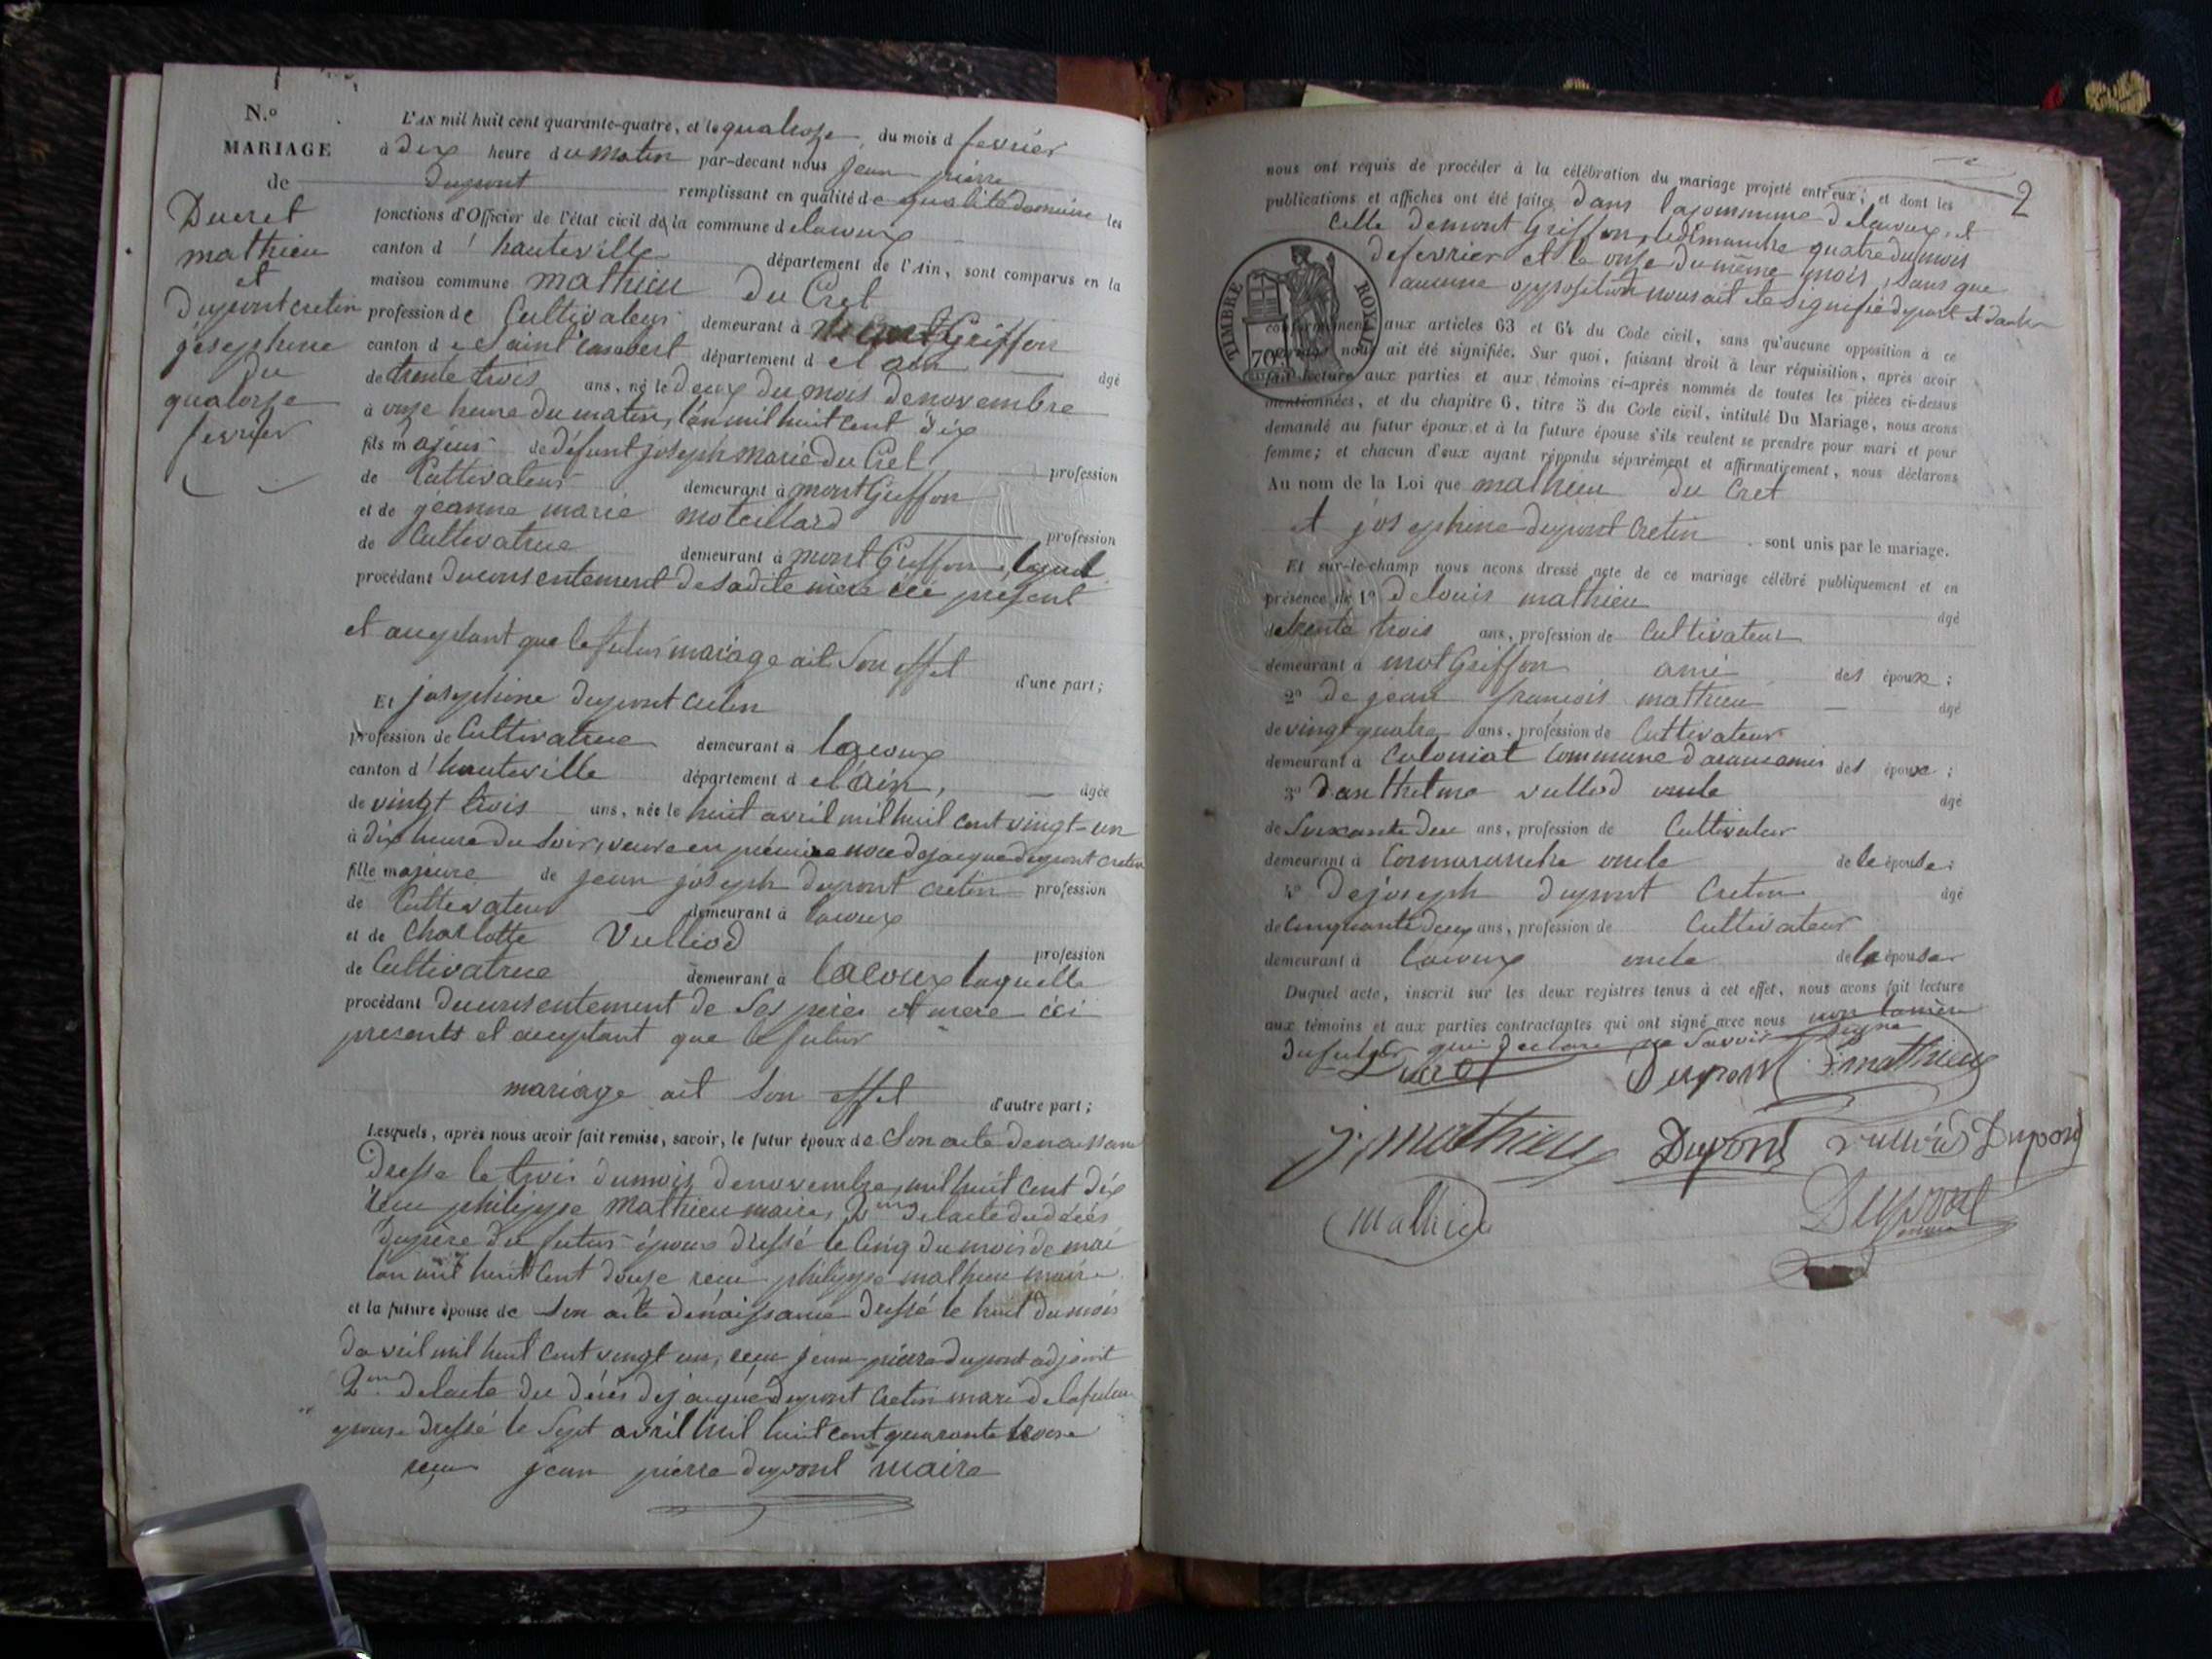 N.o
MARIAGE
de
Ducret
mathieu
et
Dupont cretin
josephine
du
quatorze
fevrier
L'an mil huit cent quarante-quatre, et le quatorze du mois d fevrier
à dix heure du matin par-devant nous jean pierre
dupont remplissant en qualité de qualité de maire les
fonctions d'Officier de l'état civil de la commune de lacoux
canton d'hauteville département de l'Ain, sont comparus en la
maison commune mathieu du Cret
profession de Cultivateur demeurant à montGriffon
canton de Saint rambert département de l ain âgé
de trente trois ans, né le deux du mois de novembre
à onze heure du matin, l'an mil huit cent dix
fils majeur de défunt joseph marie du Cret, profession
de Cultivateur demeurant à montGriffon
et de jeanne marie profession
de Cultivatrice demeurant à montGriffon, lequel
procédant du consentement de sadite mère ici présent
et acceptant que le futur mariage ait Son effet d'une part;
Et josephine dupont cretin
profession de Cultivatrice demeurant à lacoux
canton d'hauteville département de l'ain, âgée
de vingt trois ans, née le huit avril mil huit cent vingt-un
à dix heure du Soir, veuve en première noce de jacque dupont cretin
fille majeure de jean joseph dupont cretin profession
de Cultivateur demeurant à lacoux
et de Charlotte Vulliod profession
de Cultivatrice demeurant à lacoux laquelle
procédant du consentement de Ses père et mere ici
presents et acceptant que le futur
mariage ait Son effet d'autre part;
Lesquels, après nous avoir fait remise, savoir, le futur époux de Son acte de naissance
dressé le trois du mois de novembre, mil huit cent dix
reçu philippe Mathieu maire, 2me de l'acte du décés
du père du futur époux dressé le Cinq du mois de mai
l'an mil huit Cent douze reçu philippe mathieu maire
et la future épouse de Son acte de naissance dressé le huit du mois
d'avril mil huit Cent vingt un, reçu jean pierre dupont adjoint
2me de l'acte du décés de jacque dupont Cretin mari de la future
epouse dressé le Sept avril mil huit cent quarante
reçu jean pierre dupont maire
2
nous ont requis de procéder à la célébration du mariage projeté entr'eux; et dont les
publications et affiches ont été faites dans la commune de lacoux et
Celle de mont Griffon, le dimanche quatre du mois
de fevrier et le onze du même mois, sans que
aucune opposition nous ait ete Signifié
TIMBRE ROYAL
70
conformément aux articles 63 et 64 du Code civil, sans qu'aucune opposition à ce
mariage nous ait été signifiée. Sur quoi, faisant droit à leur réquisition, après avoir
fait lecture aux parties et aux témoins ci-après nommés de toutes les pièces ci-dessus
mentionnées, et du chapitre 6, titre 5 du Code civil, intitulé Du Mariage, nous avons
demandé au futur époux et à la future épouse s'ils veulent se prendre pour mari et pour
femme; et chacun d'eux ayant répondu séparément et affirmativement, nous déclarons
Au nom de la Loi que mathieu du Cret
et josephine dupont Cretin sont unis par le mariage.
Et sur-le-champ nous avons dressé acte de ce mariage célébré publiquement et en
présence de 1o de louis mathieu âgé
de trente trois ans, profession de Cultivateur
demeurant à mot Griffon ami des époux;
2o de jean francois mathieu âgé
de vingt quatre ans, profession de Cultivateur
demeurant à Coloniat Commune d'aranc ami des époux;
3o d'anthelme vulliod oncle âgé
de Soixante deux ans, profession de Cultivateur
demeurant à Cormaranche oncle de le épouse;
4o de joseph dupont Cretin âgé
de Cinquante deux ans, profession de Cultivateur
demeurant à lacoux oncle de le épouse
Duquel acte, inscrit sur les deux registres tenus à cet effet, nous avons fait lecture
aux témoins et aux parties contractantes qui ont signé avec nous non la mère
du futur qui déclare ne Savoir Signe
Ducret Dupont mathieux
J. mathieu Dupont vulliod Dupond
Mathieu Dupont